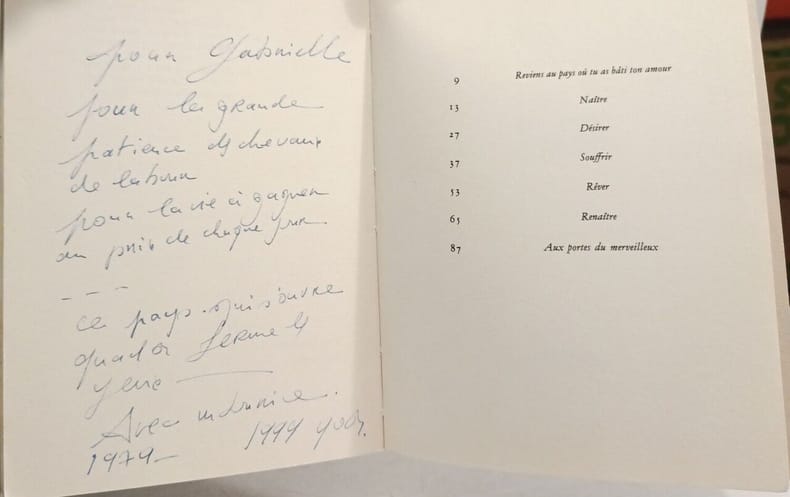 pour Gabrielle
pour la grande
patience des chevaux
de labour
pour la vie à gagner
au prix de chaque jour
- - -
ce pays qui s'ouvre
quand on ferme les
yeux
Avec
1979 - 1999
9 Reviens au pays où tu as bâti ton amour
13 Naître
27 Désirer
37 Souffrir
53 Rêver
65 Renaître
87 Aux portes du merveilleux